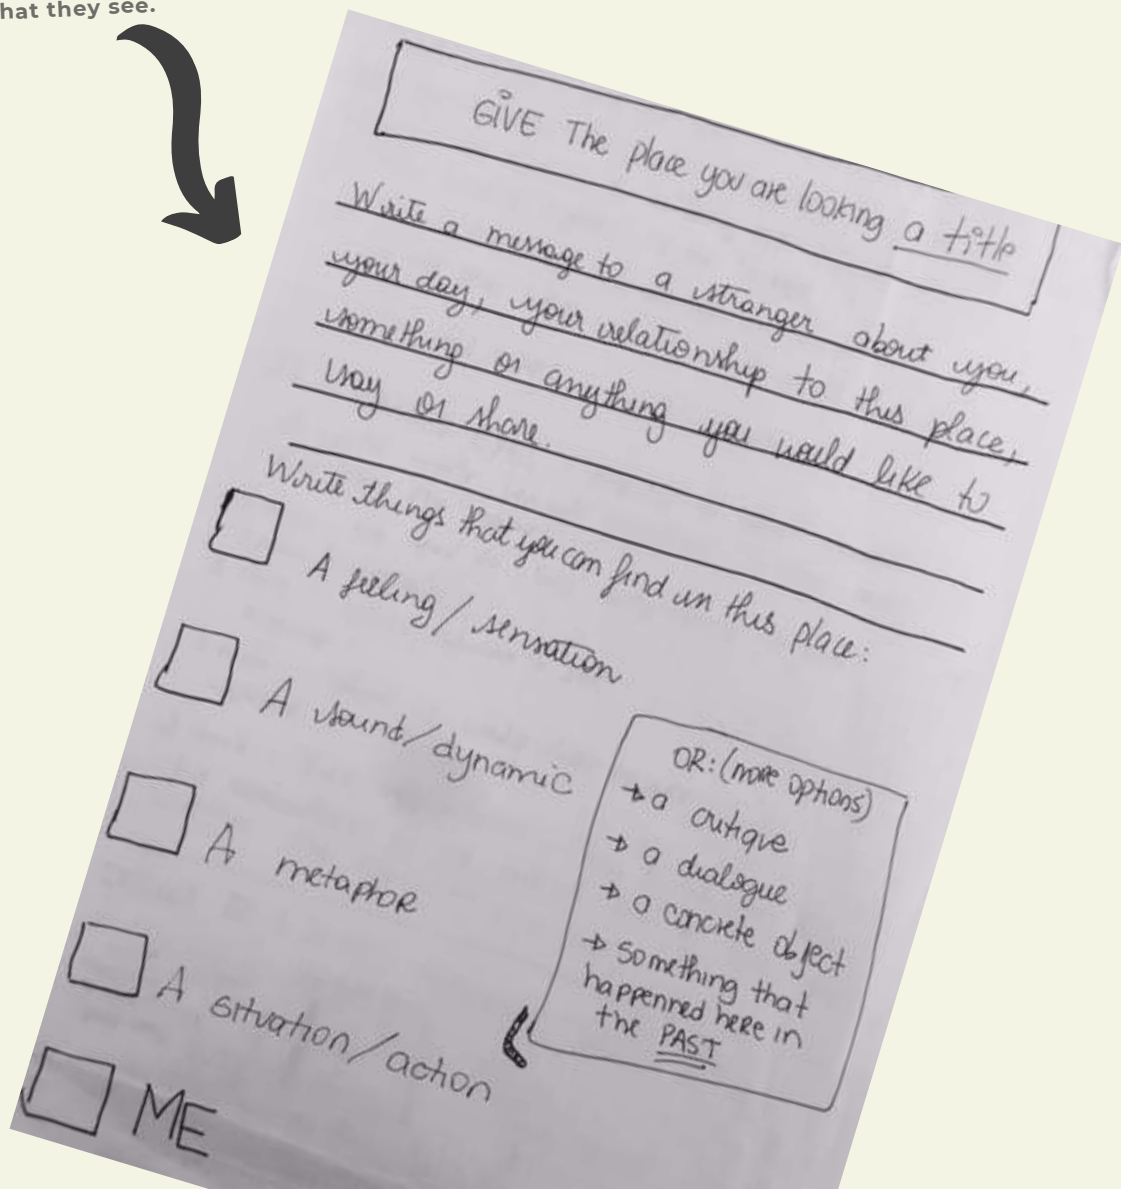 hat they see.
GiVE The place you are looking a title
Write a message to a stranger about you,
your day, your relationship to this place,
something or anything you would like to
say or share.
Write things that you can find in this place:
A feeling / sensation
A sound/dynamic
A metaphor
A situation/action
ME
OR: (more options)
→ a critique
→ a dialogue
→ a concrete object
→ something that
happenned here in
the PAST